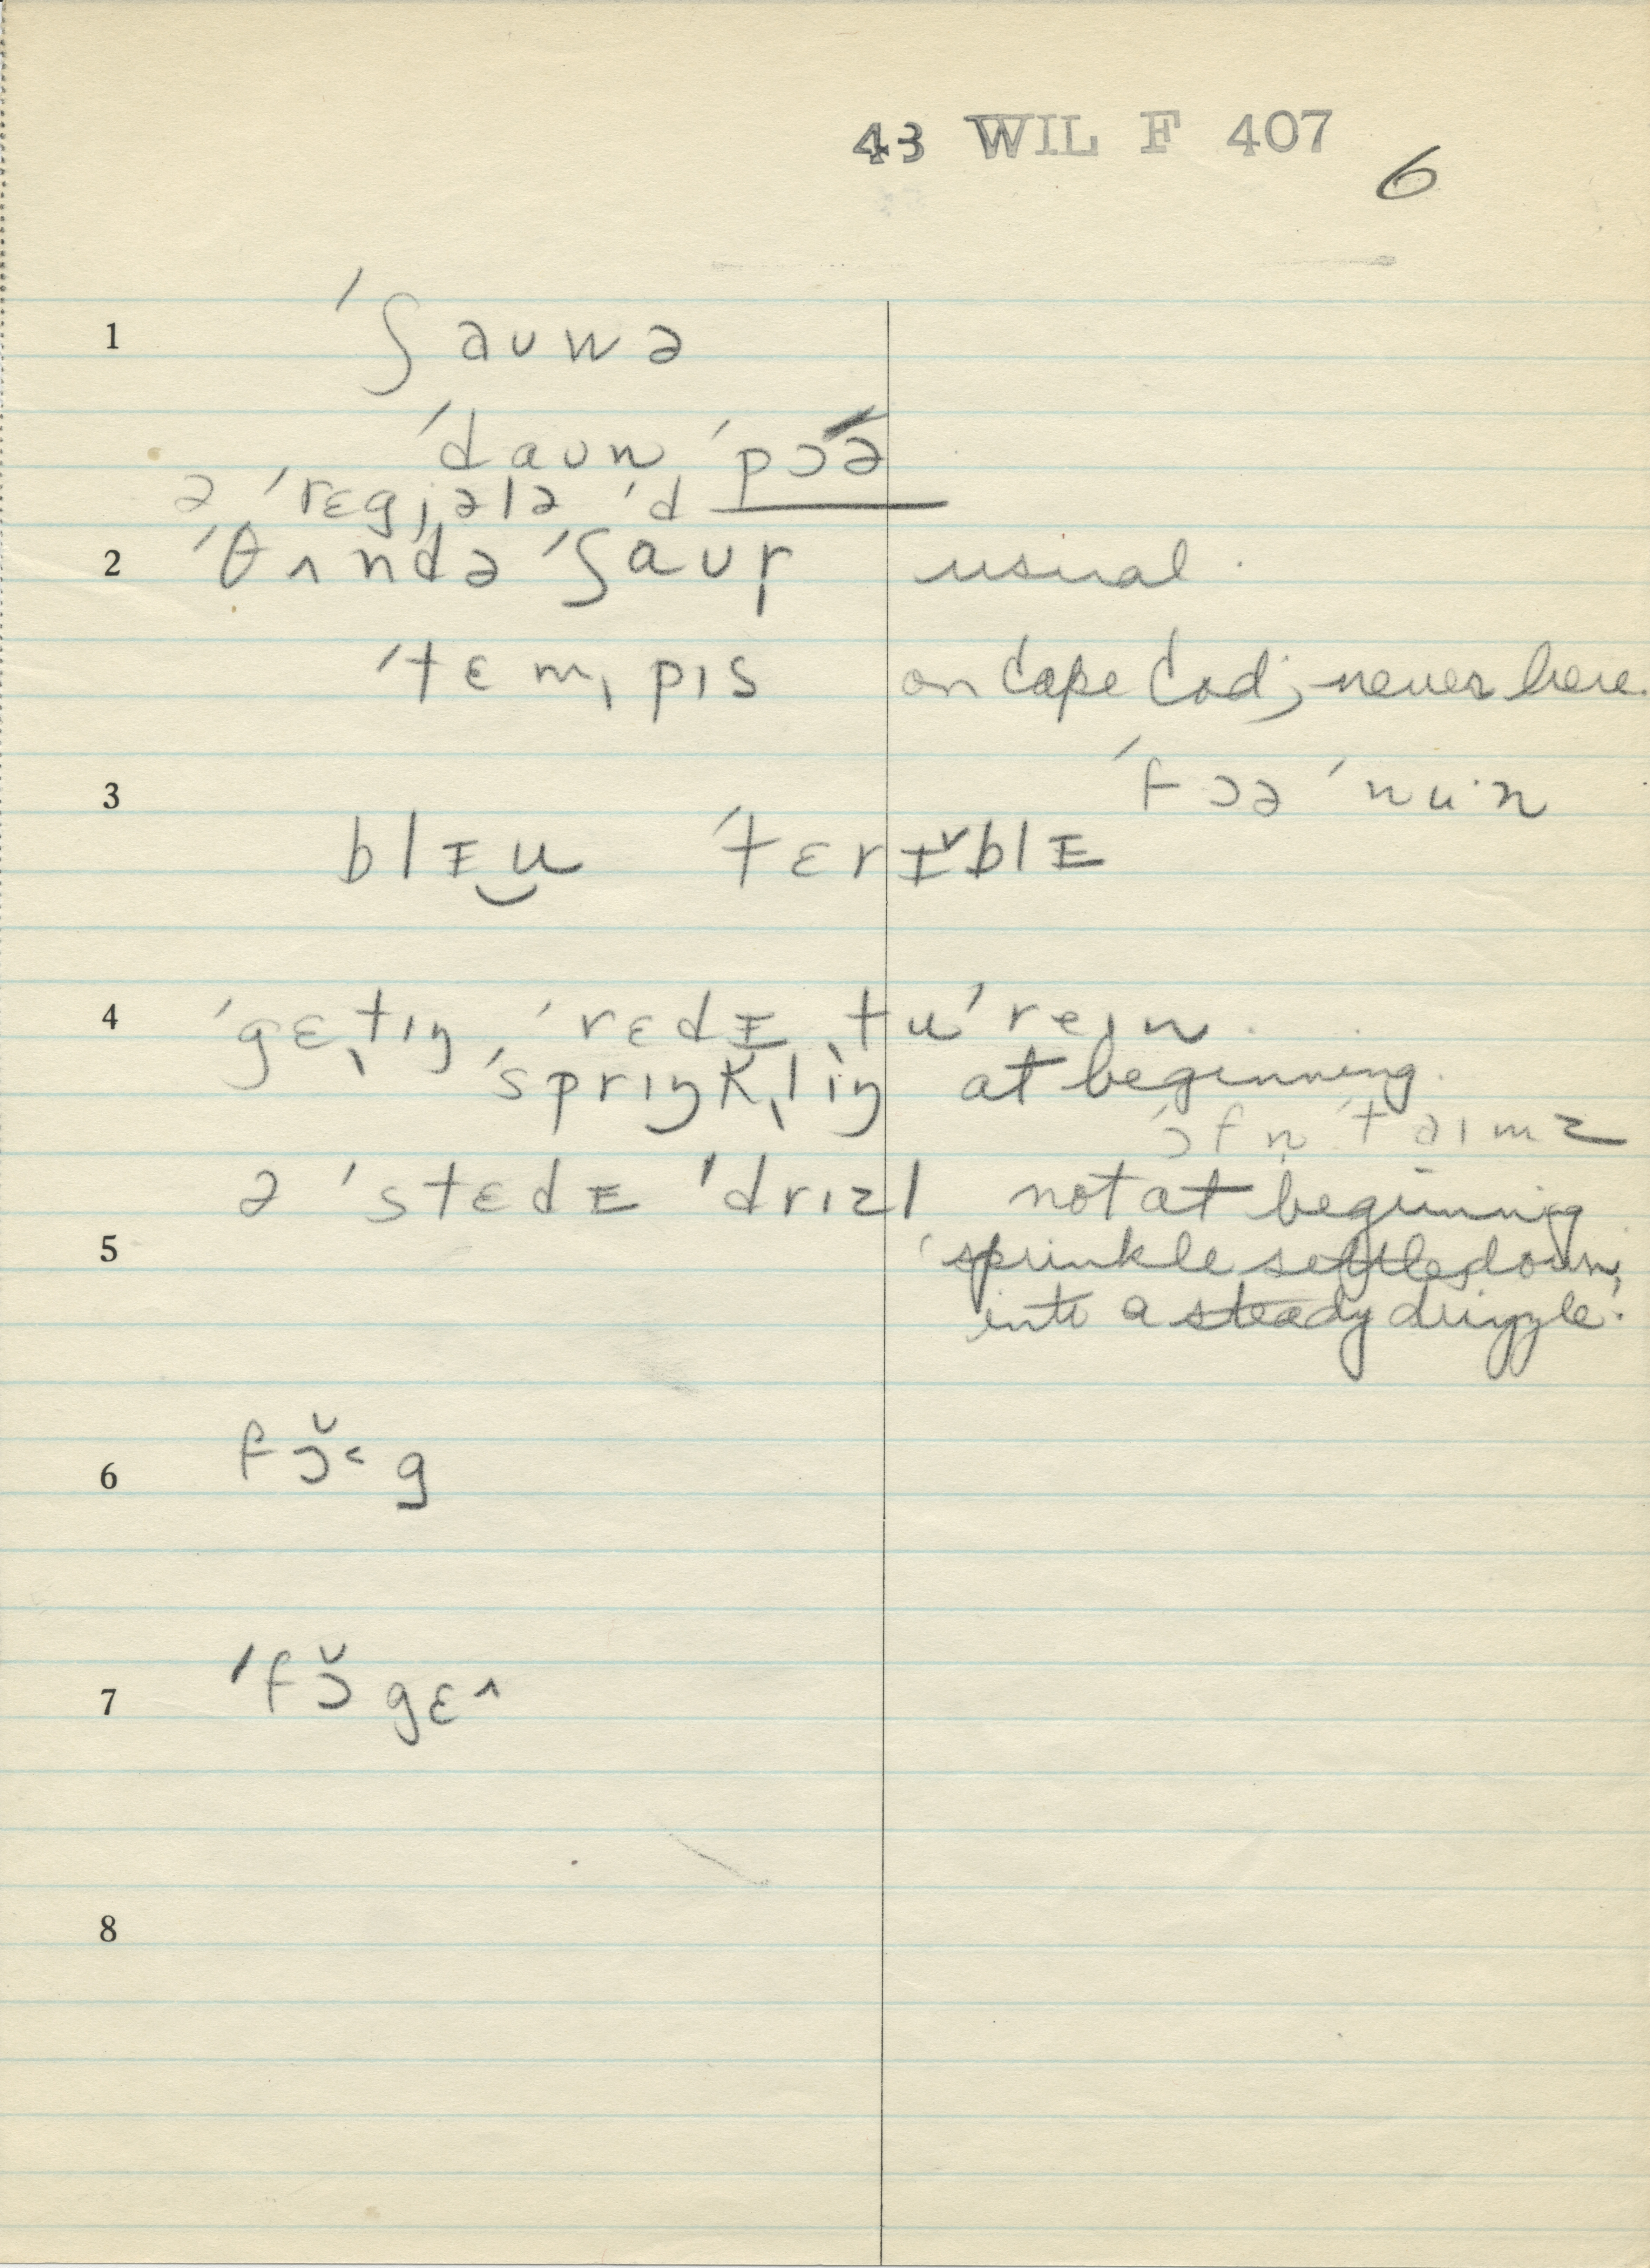 43 WIL F 407
6
1 ˈʃauwə
ˈdaun ˈpɔə
ə ˈrɛgjələ ˈd
2 ˈθʌndə ˈʃaur̩ usual.
ˈtɛmˌpɪs on Cape Cod; never here.
3 ˈfɔə ˈnu·n
blɪu̯ ˈtɛrɪ̌blɪ
4 ˈgɛˌtɪŋ ˈrɛdɪ ˌtu ˈreɪn.
ˈsprɪŋkˌlɪŋ at beginning.
ˈɔfn̩ ˈtaɪmz
ə ˈstɛdɪ ˈdrɪzl not at beginning
5 'sprinkle settles down,
into a steady drizzle.'
6 fɔ̌˂g
7 ˈfɔ̌gɛ˄
8